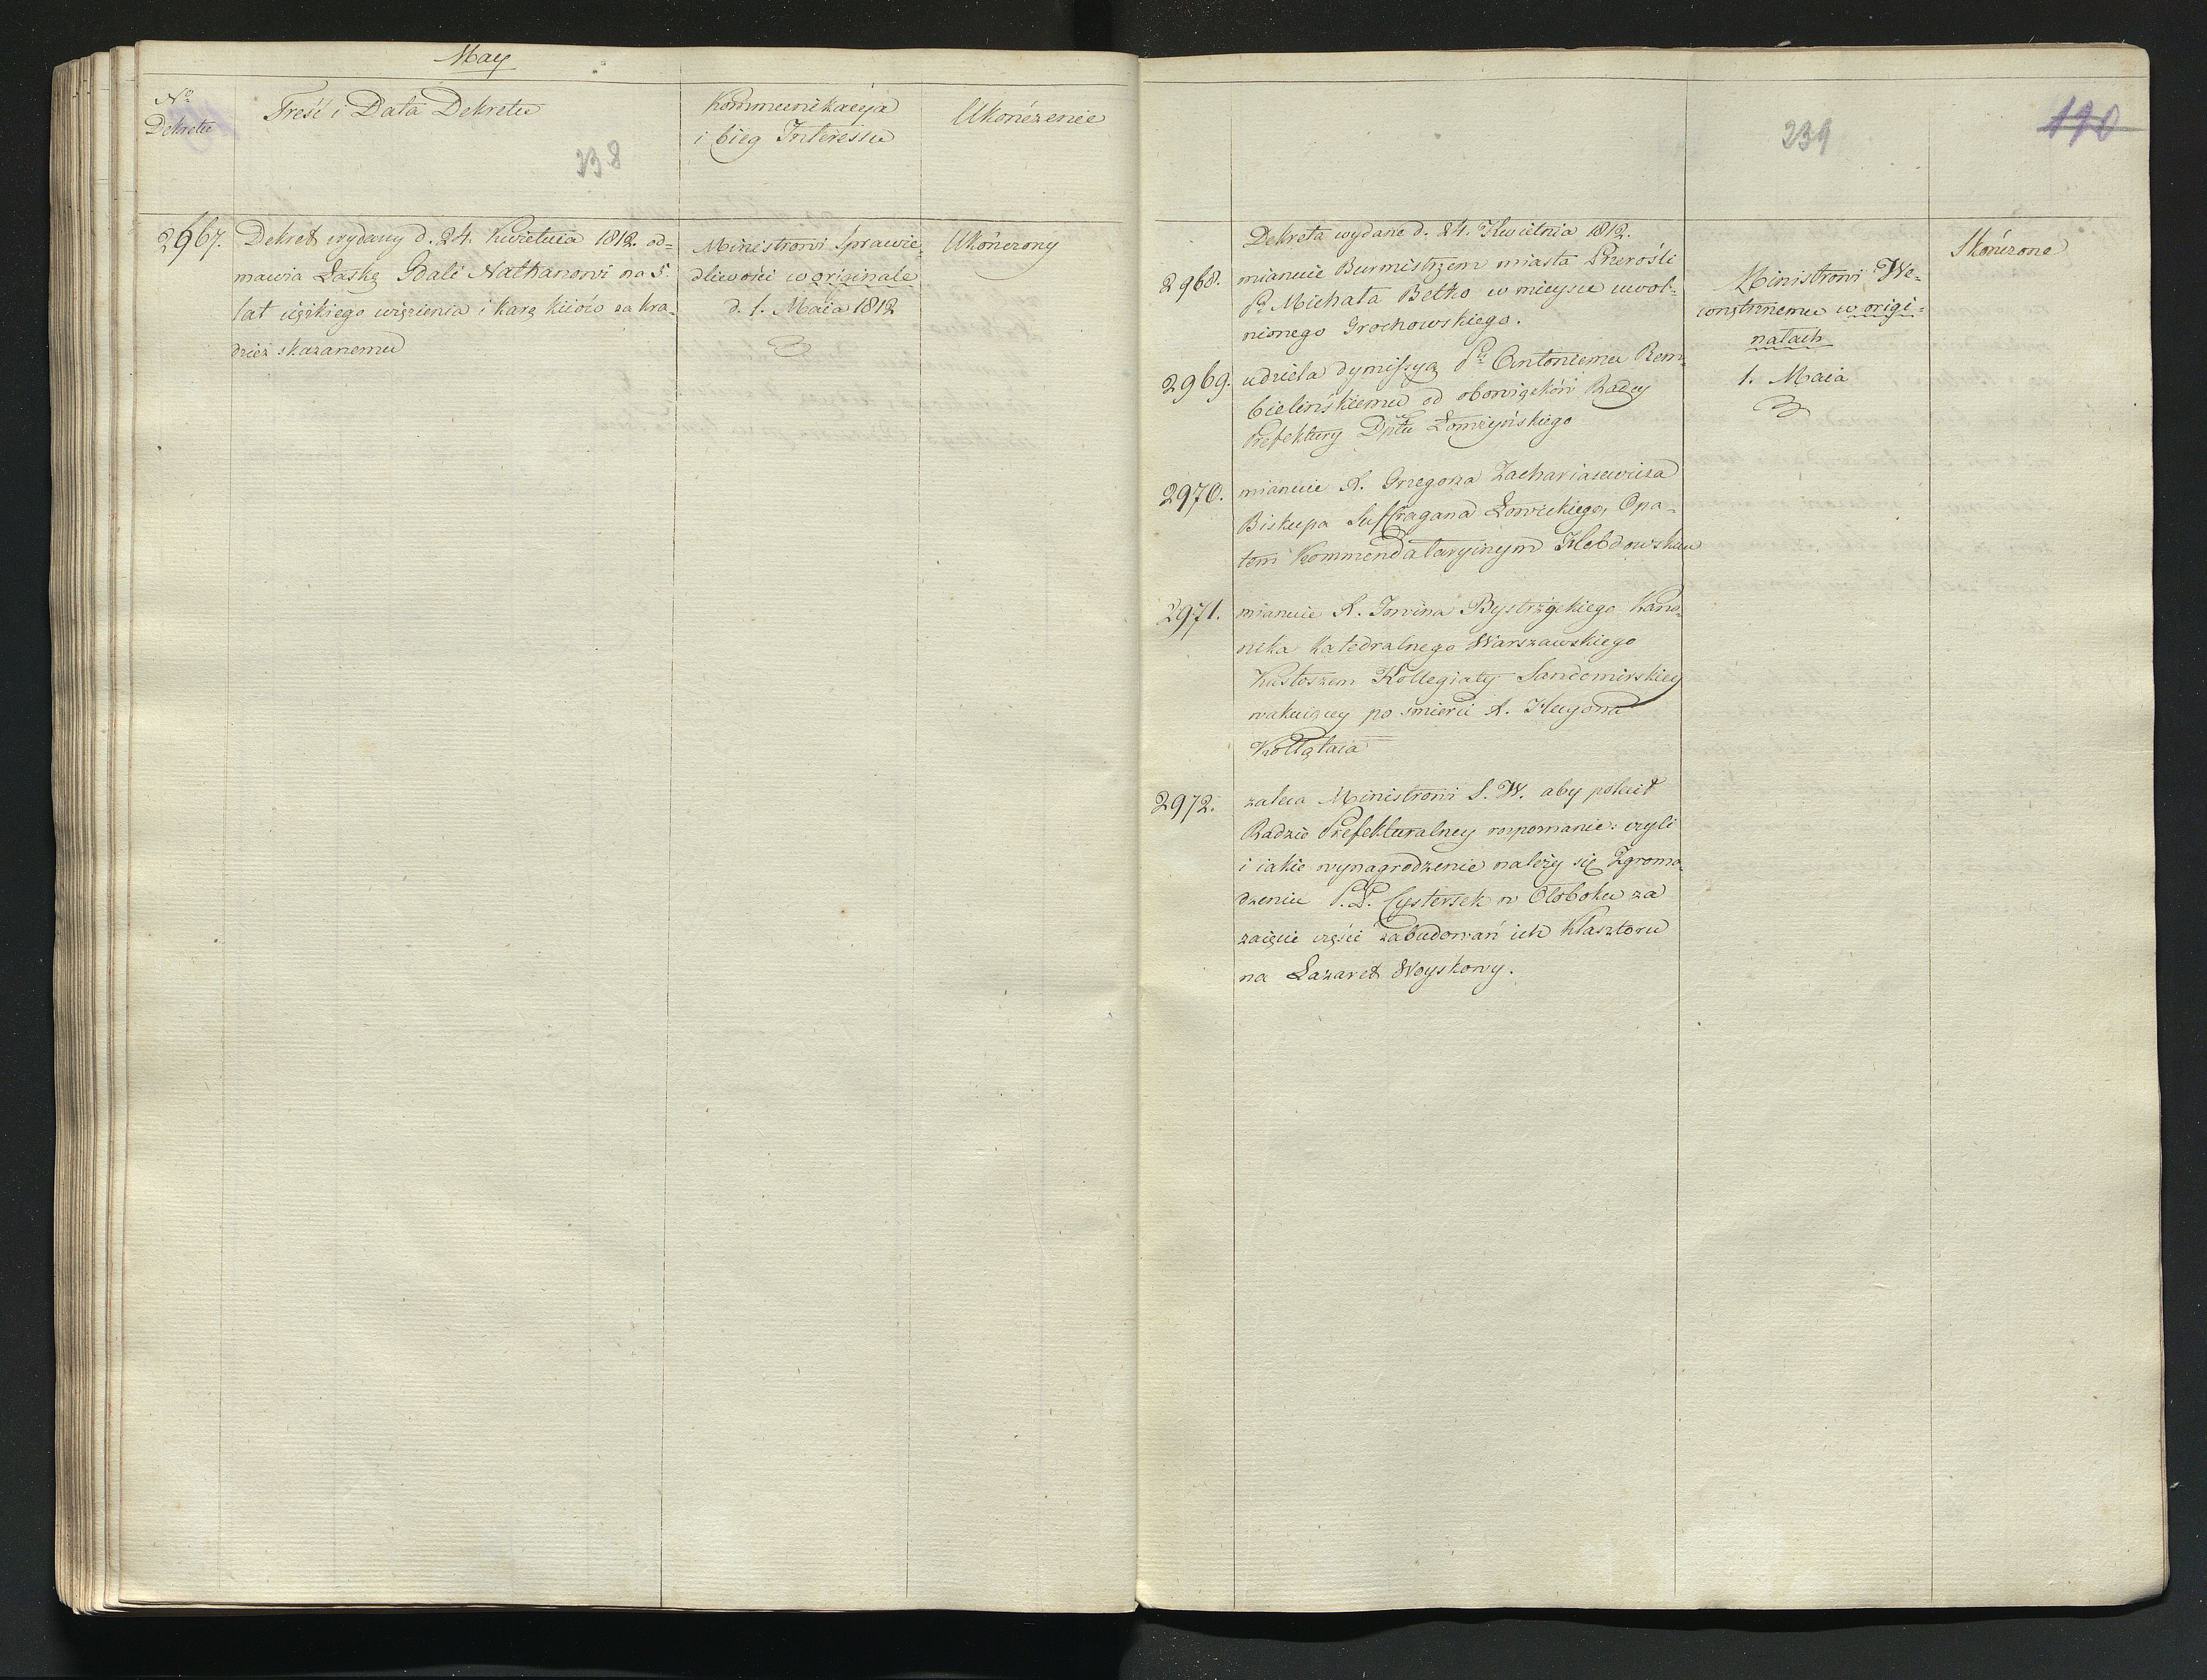 May
No
Dekretu
Treść i Data Dekretu
Kommunikacyja
i bieg Interessu
Ukończenie
238
2967. Dekret wydany d. 24. Kwietnia 1812. od=
mawia Łaskę Gdali Nathanowi na 5.
lat ciężkiego więzienia i karę kiiów za kra=
dzież skazanemu
Ministrowi Sprawie=
dliwości w originale
d. 1. Maia 1812
Ukończony
239
110
Dekreta wydane d. 24. Kwietnia 1812.
2968. mianuie Burmistrzem miasta Przerośli
Pa Michała Betko w mieyscu uwol=
nionego Grochowskiego.
2969. udziela dymissyą Pu Antoniemu Rem=
bielińskiemu od obowiązków Radcy
Prefektury Dptu Łomżyńskiego
2970. mianuie X. Grzegorza Zachariasewicza
Biskupa Suffragana Łowickiego, Opa=
tem Kommendataryinym Hebdowskim
2971. mianuie X. Jowina Bystrzyckiego Kano=
nika Katedralnego Warszawskiego
Kustoszem Kollegiaty Sandomirskiey
wakuiącey po śmierci X. Hugona
Kołłątaia
2972. zaleca Ministrowi S. W. aby polecił
Radzie Prefekturalney rozpoznanie: czyli
i iakie wynagrodzenie należy się Zgroma=
dzeniu P.P. Cystersek w Ołoboku za
zaięcie części zabudowań ich Klasztoru
na Lazaret Woyskowy.
Ministrowi We=
wnętrznemu w origi=
nałach
1. Maia
Skończone